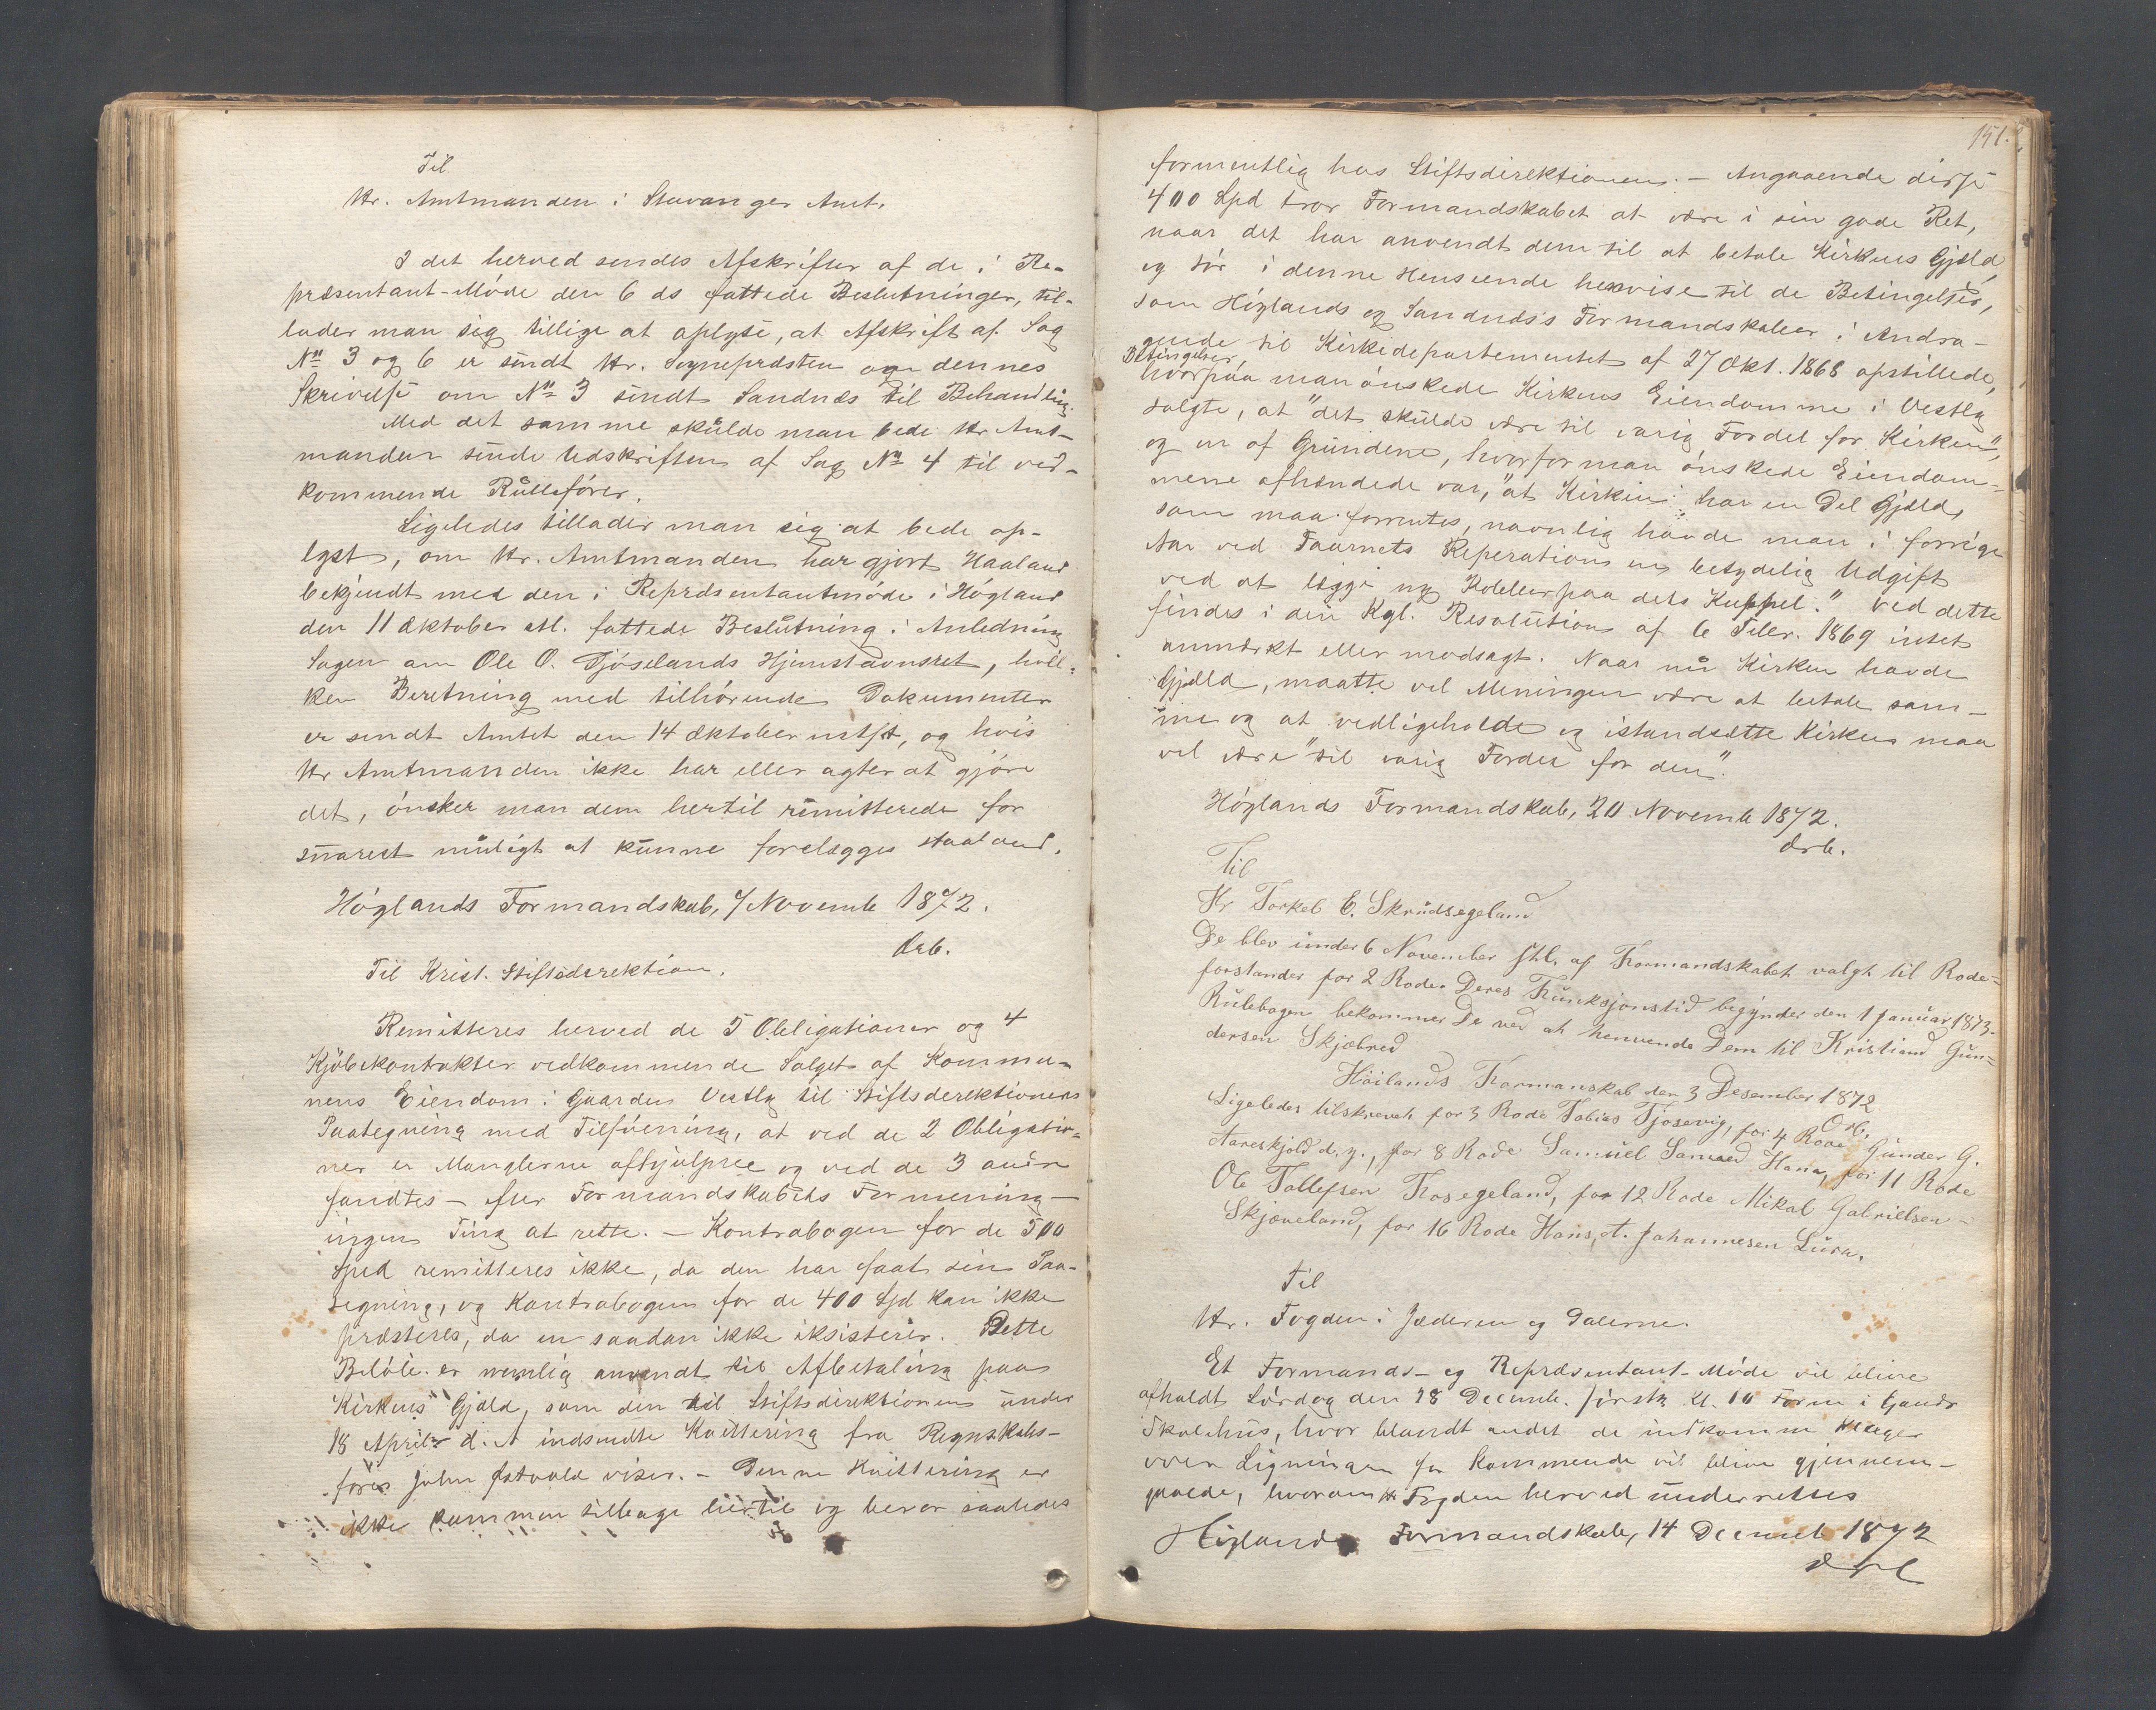 Til
Hr. Amtmanden i Stavanger Amt.
I det herved sendes Afskrifter af de i Re-
præsentant-Møde den 6 ds fattede Beslutninger, til-
lader man sig tillige at oplyse, at Afskrift af Sag
No 3 og 6 er sendt Hr. Sognepræsten og dennes
Skrivelse om No 3 sendt Sandnæs til Behandling.
Med det samme skulde man bede Hr Amt-
manden sende Udskriften af Sag No 4 til ved-
kommende Rullefører.
Ligeledes tillader man sig at bede op-
lyst, om Hr. Amtmanden har gjort Haaland
bekjendt med den i Repræsentantmøde i Høgland
den 11 Oktober stl. fattede Beslutning i Anledning
Sagen om Ole O. Gjøselands Hjemstavnsret, hvil-
ken Beretning med tilhørende Dokumenter
er sendt Amtet den 14 Oktober næstf., og hvis
Hr Amtmanden ikke har eller agter at gjøre
det, ønsker man dem hertil remitterede for
snarest muligt at kunne forelægges Haaland.
Høglands Formandskab, 9/Novemb 1872.
Ærb.
Til Krist. Stiftsdirektion.
Remitteres herved de 5 Obligationer og 4
Kjøbekontrakter vedkommende Salget af Kommu-
nens Eiendom i Gaarden Vestly til Stiftsdirektionens
Paategning med Tilføiening, at ved de 2 Obligatio-
ner er Manglerne afhjulpne og ved de 3 andre
fandtes - efter Formandskabets Formening -
ingen Ting at rette. - Kontrabogen for de 500
Spd remitteres ikke, da den har faat sin Paa-
tegning, og Kontrabogen for de 400 Spd kan ikke
præsteres, da en saadan ikke eksisterer. Dette
Beløb er nemlig anvendt til Afbetaling paa
Kirkens Gjæld, som den til Stiftsdirektionen under
18 April d. A indsendte Kvittering fra Regnskabs-
fører John Østvold viser. - Denne Kvittering er
ikke kommen tilbage hertil og beror saaledes
151.
formentlig hos Stiftsdirektionen. - Angaaende disse
400 Spd tror Formandskabet at være i sin gode Ret,
naar det har anvendt dem til at betale Kirkens Gjæld,
og tør i denne Henseende henvise til de Betingelser,
som Høglands og Sandnes's Formandskaber i Andra-
gende til Kirkedepartementet af 27 Okt. 1868 opstillede,
Betingelser,
hvorpaa man ønskede Kirkens Eiendomme i Vestly
solgte, at "det skulde være til varig Fordel for Kirken",
og en af Grundene, hvorfor man ønskede Eiendom-
mene afhændede var, "at Kirken har en Del Gjæld,
som maa forrentes, navnlig havde man i forrige
Aar ved Taarnets Reperation en betydelig Udgift
ved at lægge ny Kobber paa dets Kuppel." Ved dette
findes i den Kgl. Resolution af 6 Febr. 1869 intet
anmærkt eller modsagt. Naar nu Kirken havde
Gjæld, maatte vel Meningen være at betale sam-
me og at vedligeholde og istandsætte Kirken maa
vel være "til varig Fordel for den".
Høglands Formandskab, 20 Novemb 1872.
Ærb.
Til
Hr Torkel E. Skrudsegeland
De blev under 6 November sstl. af Formandskabet valgt til Rode-
forstander for 2 Rode. Deres Funksjonstid begynder den 1 Januar 1873.
Rulebogen bekommer De ved at henvende Dem til Kristian Gun-
dersen Skjæbred
Høilands Formanskab den 3 Desember 1872
Orb.
Ligeledes tilskrevet for 3 Rode Tobias Tjøsevig, for 4 Rode Gunder G.
Aareskjold d. y., for 8 Rode Samuel Samuel Hana, for 11 Rode
Ole Tollefsen Fosegeland, for 12 Rode Mikal Gabrielsen
Skjæveland, for 16 Rode Hans A. Johannesen Lura.
Til
Hr. Fogden i Jæderen og Dalerne.
Et Formands- og Repræsentant-Møde vil blive
afholdt Lørdag den 28 Decemb. førstk. Kl. 10 Form i Gands
Skolehus, hvor blandt andet de indkomne Klager
over Ligningen for kommende vil blive gjennem-
gaaede, hvorom Hr Fogden herved underrettes
Høglands Formandskab, 14 Decemb 1872
Ærb